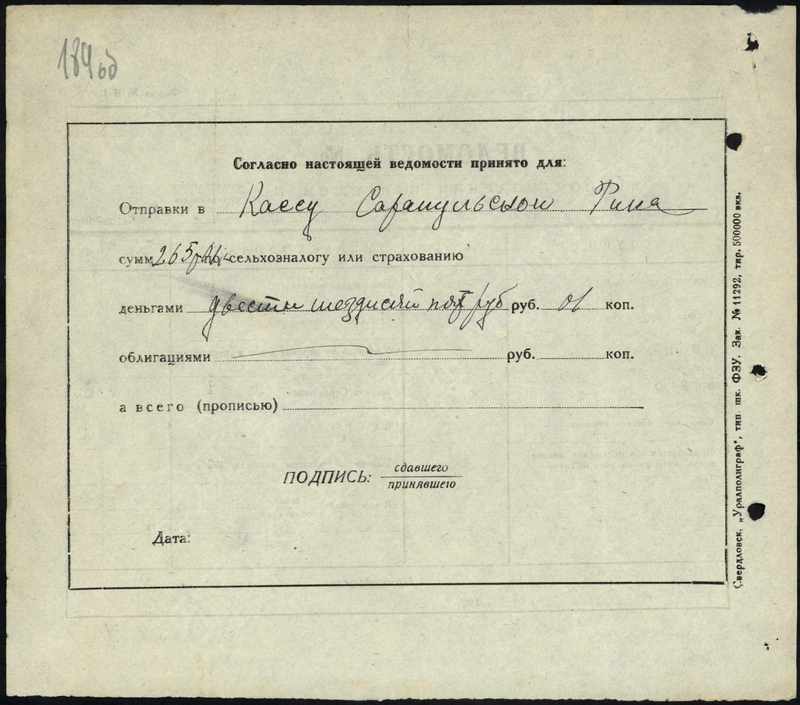 184 об
Согласно настоящей ведомости принято для:
Отправки в Кассу Сарапульской
сумм 265 р. 01 к. сельхозналогу или страхованию
деньгами двести шездисят пят руб руб. 01 коп.
облигациями руб. коп.
а всего (прописью)
ПОДПИСЬ: сдавшего
принявшего
Дата:
Свердловск, „Уралполиграф“, тип шк. ФЗУ. Зак. № 11292, тир. 500000 экз.